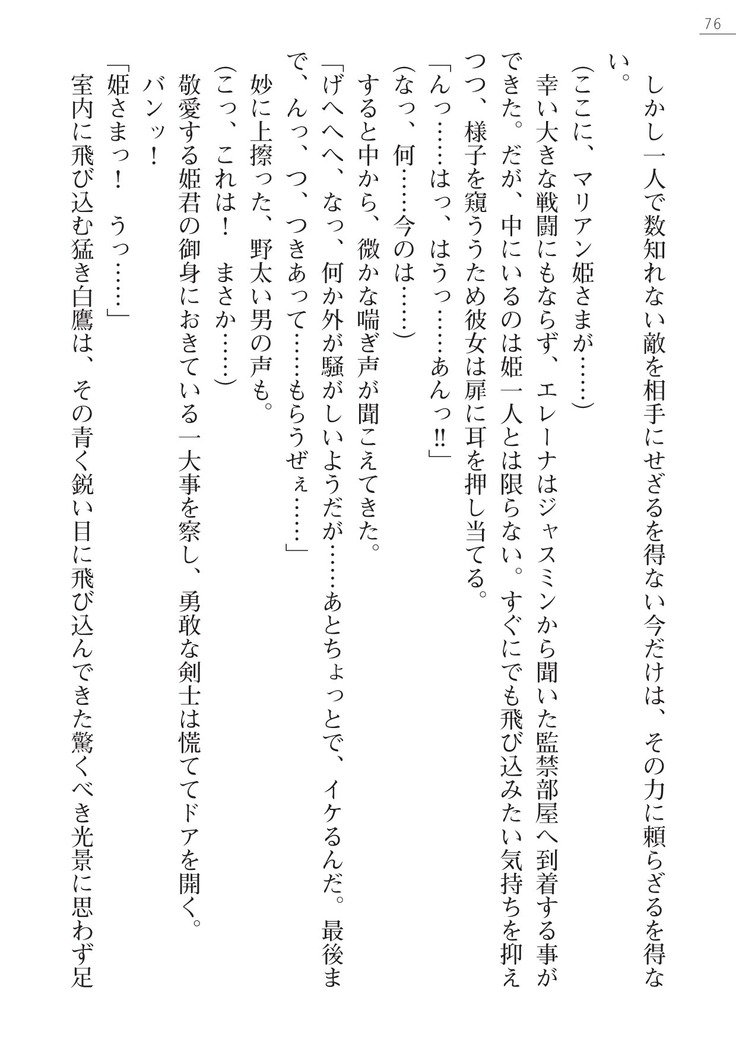 76
しかし一人で数知れない敵を相手にせざるを得ない今だけは、その力に頼らざるを得な
い。
(ここに、マリアン姫さまが……)
幸い大きな戦闘にもならず、エレーナはジャスミンから聞いた監禁部屋へ到着する事が
できた。だが、中にいるのは姫一人とは限らない。すぐにでも飛び込みたい気持ちを抑え
つつ、様子を窺ううため彼女は扉に耳を押し当てる。
「んっ……はっ、はうっ……あんっ!!」
(なっ、何……今のは……)
すると中から、微かな喘ぎ声が聞こえてきた。
「げへへへ、なっ、何か外が騒がしいようだが……あとちょっとで、イケるんだ。最後ま
で、んっ、つ、つきあって……もらうぜぇ……」
妙に上擦った、野太い男の声も。
(こっ、これは！　まさか……)
敬愛する姫君の御身におきている一大事を察し、勇敢な剣士は慌ててドアを開く。
バンッ！
「姫さまっ！　うっ……」
室内に飛び込む猛き白鷹は、その青く鋭い目に飛び込んできた驚くべき光景に思わず足